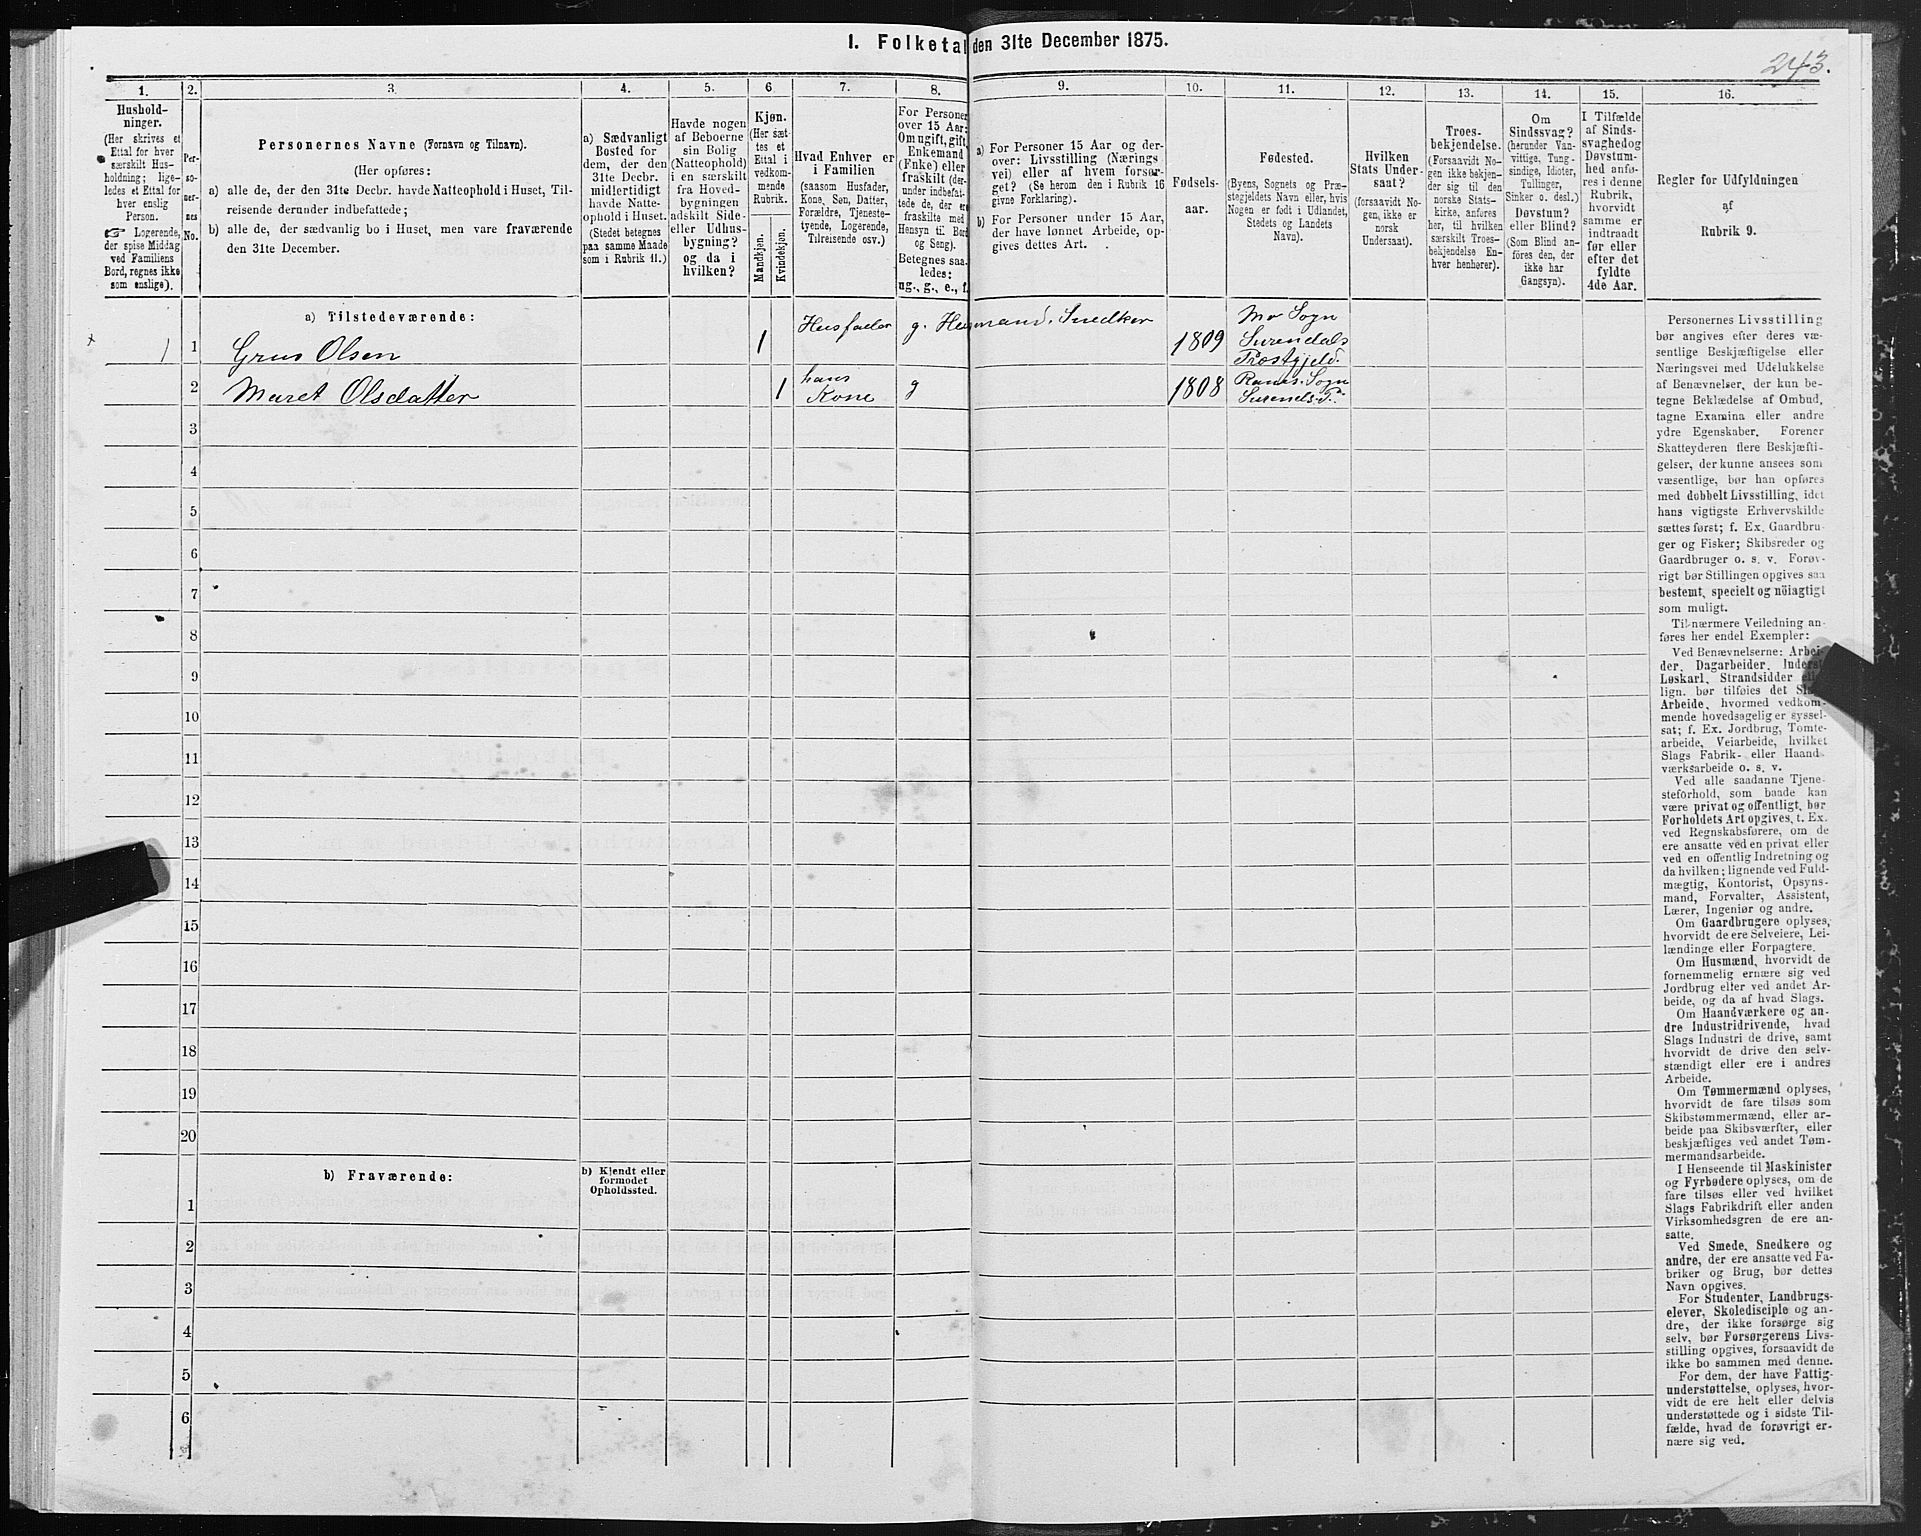 I. Folketal den 31te December 1875.
243.
1.
Hushold-
ninger.
(Her skrives et
Ettal for hver
særskilt Hus-
holdning; lige-
ledes et Ettal for
hver enslig
Person.
☞ Logerende,
der spise Middag
ved Familiens
Bord, regnes ikke
som enslige).
2.
Per-
so-
ner-
nes
No.
3.
Personernes Navne (Fornavn og Tilnavn).
(Her opføres:
a) alle de, der den 31te Decbr. havde Natteophold i Huset, Til-
reisende derunder indbefattede;
b) alle de, der sædvanlig bo i Huset, men vare fraværende
den 31te December.
4.
a) Sædvanligt
Bosted for
dem, der den
31te Decbr.
midlertidigt
havde Natte-
ophold i Huset.
(Stedet betegnes
paa samme Maade
som i Rubrik 11.)
5.
Havde nogen
af Beboerne
sin Bolig
(Natteophold)
i en særskilt
fra Hoved-
bygningen
adskilt Side-
eller Udhus-
bygning?
og da i
hvilken?
6
Kjøn.
(Her sæt-
tes et
Ettal i
vedkom-
mende
Rubrik.
Mandkjøn.
Kvindekjøn.
7.
Hvad Enhver er
i Familien
(saasom Husfader,
Kone, Søn, Datter,
Forældre, Tjeneste-
tyende, Logerende,
Tilreisende osv.)
8.
For Personer
over 15 Aar:
Om ugift, gift,
Enkemand
(Enke) eller
fraskilt (der-
under indbefat-
tede de, der ere
fraskilte med
Hensyn til Bord
og Seng).
Betegnes saa-
ledes:
ug., g., e., f.
9.
a) For Personer 15 Aar og der-
over: Livsstilling (Nærings-
vei) eller af hvem forsør-
get? (Se herom den i Rubrik 16
givne Forklaring).
b) For Personer under 15 Aar,
der have lønnet Arbeide, op-
gives dettes Art.
10.
Fødsels-
aar.
11.
Fødested.
(Byens, Sognets og Præ-
stegjeldets Navn eller, hvis
Nogen er født i Udlandet,
Stedets og Landets
Navn).
12.
Hvilken
Stats Under-
saat?
(forsaavidt No-
gen ikke er
norsk
Undersaat).
13.
Troes-
bekjendelse.
(Forsaavidt No-
gen ikke bekjen-
der sig til den
norske Stats-
kirke, anføres
her, til hvilken
særskilt Troes-
bekjendelse En-
hver henhører).
14.
Om
Sindssvag?
(herunder Van-
vittige, Tung-
sindige, Idioter,
Tullinger,
Sinker o. desl.)
Døvstum?
eller Blind?
(Som Blind an-
føres den, der
ikke har
Gangsyn).
15.
I Tilfælde
af Sinds-
svaghed og
Døvstum-
hed anfø-
res i denne
Rubrik,
hvorvidt
samme er
indtraadt
før eller
efter det
fyldte
4de Aar.
16.
Regler for Udfyldningen
af
Rubrik 9.
a) Tilstedeværende:
1 1 Grus Olsen 1 Husfader g. Husmand. Snedker 1809 Mo Sogn
Surendals
Præstgjeld.
2 Maret Olsdatter 1 hans
Kone g 1808 Ranes. Sogn
Surends. P.
3
4
5
6
7
8
9
10
11
12
13
14
15
16
17
18
19
20
b) Fraværende:
b) Kjendt eller
formodet
Opholdssted.
1
2
3
4
5
6
Personernes Livsstilling
bør angives efter deres væ-
sentlige Beskjæftigelse eller
Næringsvei med Udelukkelse
af Benævnelser, der kun be-
tegne Beklædelse af Ombud,
tagne Examina eller andre
ydre Egenskaber. Forener
Skatteyderen flere Beskjæfti-
gelser, der kunne ansees som
væsentlige, bør han opføres
med dobbelt Livsstilling, idet
hans vigtigste Erhvervskilde
sættes først; f. Ex. Gaardbru-
ger og Fisker; Skibsreder og
Gaardbruger o. s. v. Forøv-
rigt bør Stillingen opgives saa
bestemt, specielt og nöiagtigt
som muligt.
Til nærmere Veiledning an-
føres her endel Exempler:
Ved Benævnelserne: Arbei-
der, Dagarbeider, Inderst,
Løskarl, Strandsidder eller
lign. bør tilføies det Slags
Arbeide, hvormed vedkom-
mende hovedsagelig er syssel-
sat; f. Ex. Jordbrug, Tomte-
arbeide, Veiarbeide, hvilket
Slags Fabrik- eller Haand-
værksarbeide o. s. v.
Ved alle saadanne Tjene-
steforhold, som baade kan
være privat og offentligt, bør
Forholdets Art opgives, t. Ex.
ved Regnskabsførere, om de
ere ansatte ved en privat eller
ved en offentlig Indretning og
da hvilken; lignende ved Fuld-
mægtig, Kontorist, Opsyns-
mand, Forvalter, Assistent,
Lærer, Ingeniør og andre.
Om Gaardbrugere oplyses,
hvorvidt de ere Selveiere, Lei-
lændinge eller Forpagtere.
Om Husmænd, hvorvidt de
fornemmelig ernære sig ved
Jordbrug eller ved andet Ar-
beide, og da af hvad Slags.
Om Haandværkere og an-
dre Industridrivende, hvad
Slags Industri de drive, samt
hvorvidt de drive den selv-
stændigt eller ere i andres
Arbeide.
Om Tømmermænd oplyses,
hvorvidt de fare tilsøs som
Skibstømmermænd, eller ar-
beide paa Skibsværfter, eller
beskjæftiges ved andet Tøm-
mermandsarbeide.
I Henseende til Maskinister
og Fyrbødere oplyses, om de
fare tilsøs eller ved hvilket
Slags Fabrikdrift eller anden
Virksomhedsgren de ere an-
satte.
Ved Smede, Snedkere og
andre, der ere ansatte ved Fa-
briker og Brug, bør dettes
Navn opgives.
For Studenter, Landbrugs-
elever, Skoledisciple og an-
dre, der ikke forsørge sig
selv, bør Forsørgerens Livs-
stilling opgives, forsaavidt de
ikke bo sammen med denne.
For dem, der have Fattig-
understøttelse, oplyses, hvor-
vidt de ere helt eller delvis
understøttede og i sidste Til-
fælde, hvad de forøvrigt er-
nære sig ved.